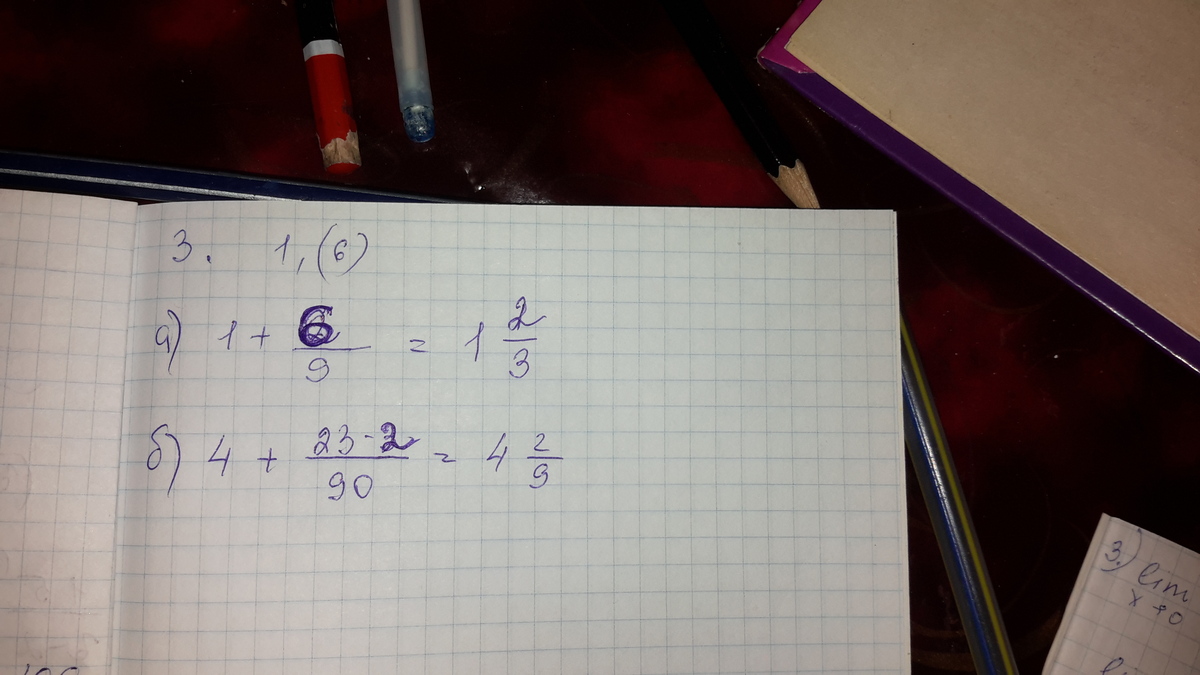 3. 1,(6)
а) 1 + 6/9 = 1 2/3
б) 4 + 23-2/90 = 4 2/9
3.) lim
x→0